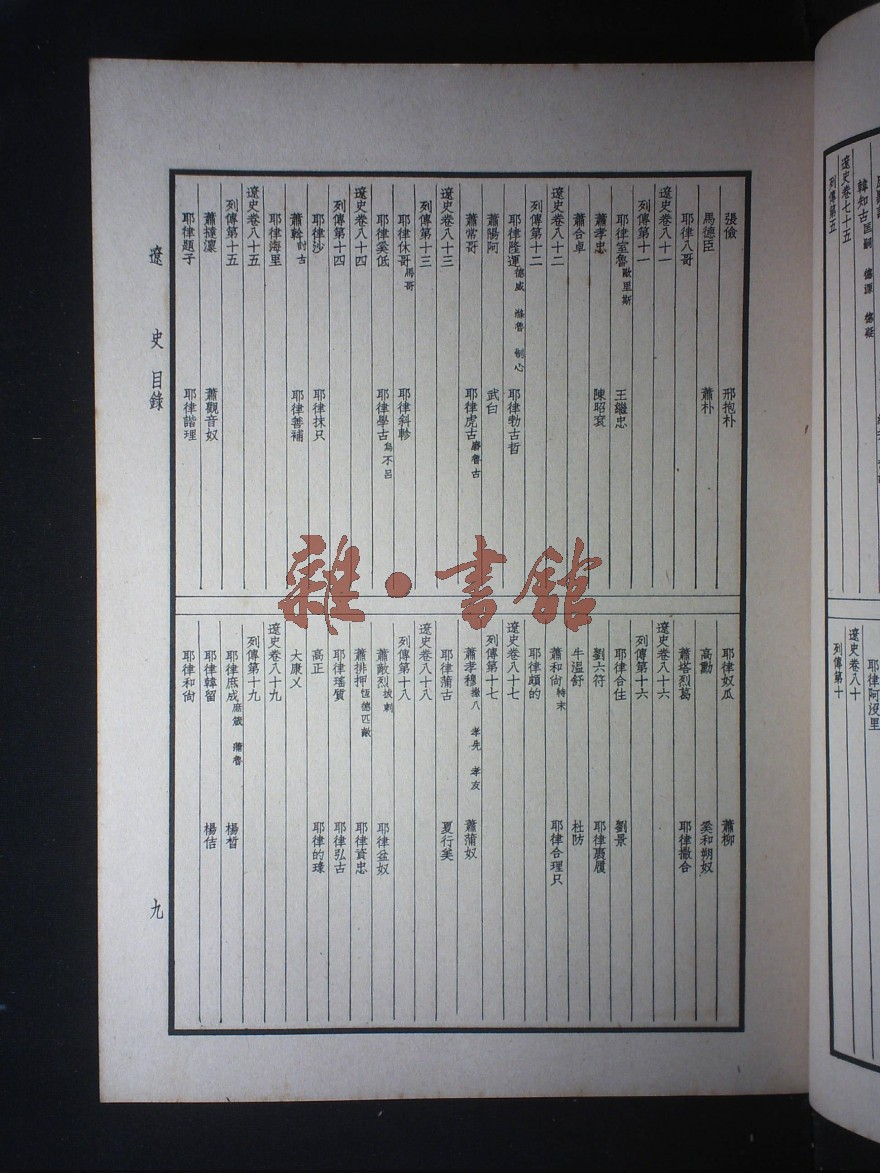 遼史卷七十五
列傳第五
韓知古
耶律阿沒里
遼史卷八十
列傳第十
張儉 邢抱朴
馬德臣 蕭朴
耶律八哥
遼史卷八十一
列傳第十一
耶律室魯歐里斯 王繼忠
蕭孝忠 陳昭袞
蕭合卓
遼史卷八十二
列傳第十二
耶律隆運德威 滌魯 制心 耶律勃古哲
蕭陽阿 武白
蕭常哥 耶律虎古磨魯古
遼史卷八十三
列傳第十三
耶律休哥馬哥 耶律斜軫
耶律奚低 耶律學古烏不呂
遼史卷八十四
列傳第十四
耶律沙 耶律抹只
蕭幹討古 耶律善補
耶律海里
遼史卷八十五
列傳第十五
蕭撻凜 蕭觀音奴
耶律題子 耶律諧理
耶律奴瓜 蕭柳
高勳 奚和朔奴
蕭塔烈葛 耶律撒合
遼史卷八十六
列傳第十六
耶律合住 劉景
劉六符 耶律褭履
牛溫舒 杜防
蕭和尚特末 耶律合理只
耶律頗的
遼史卷八十七
列傳第十七
蕭孝穆撒八 孝先 孝友 蕭蒲奴
耶律蒲古 夏行美
遼史卷八十八
列傳第十八
蕭敵烈拔剌 耶律盆奴
蕭排押恆德 匹敵 耶律資忠
耶律瑤質 耶律弘古
高正 耶律的琭
大康乂
遼史卷八十九
列傳第十九
耶律庶成庶箴 蒲魯 楊晳
耶律韓留 楊佶
耶律和尚
遼史 目錄
九
雜·書館